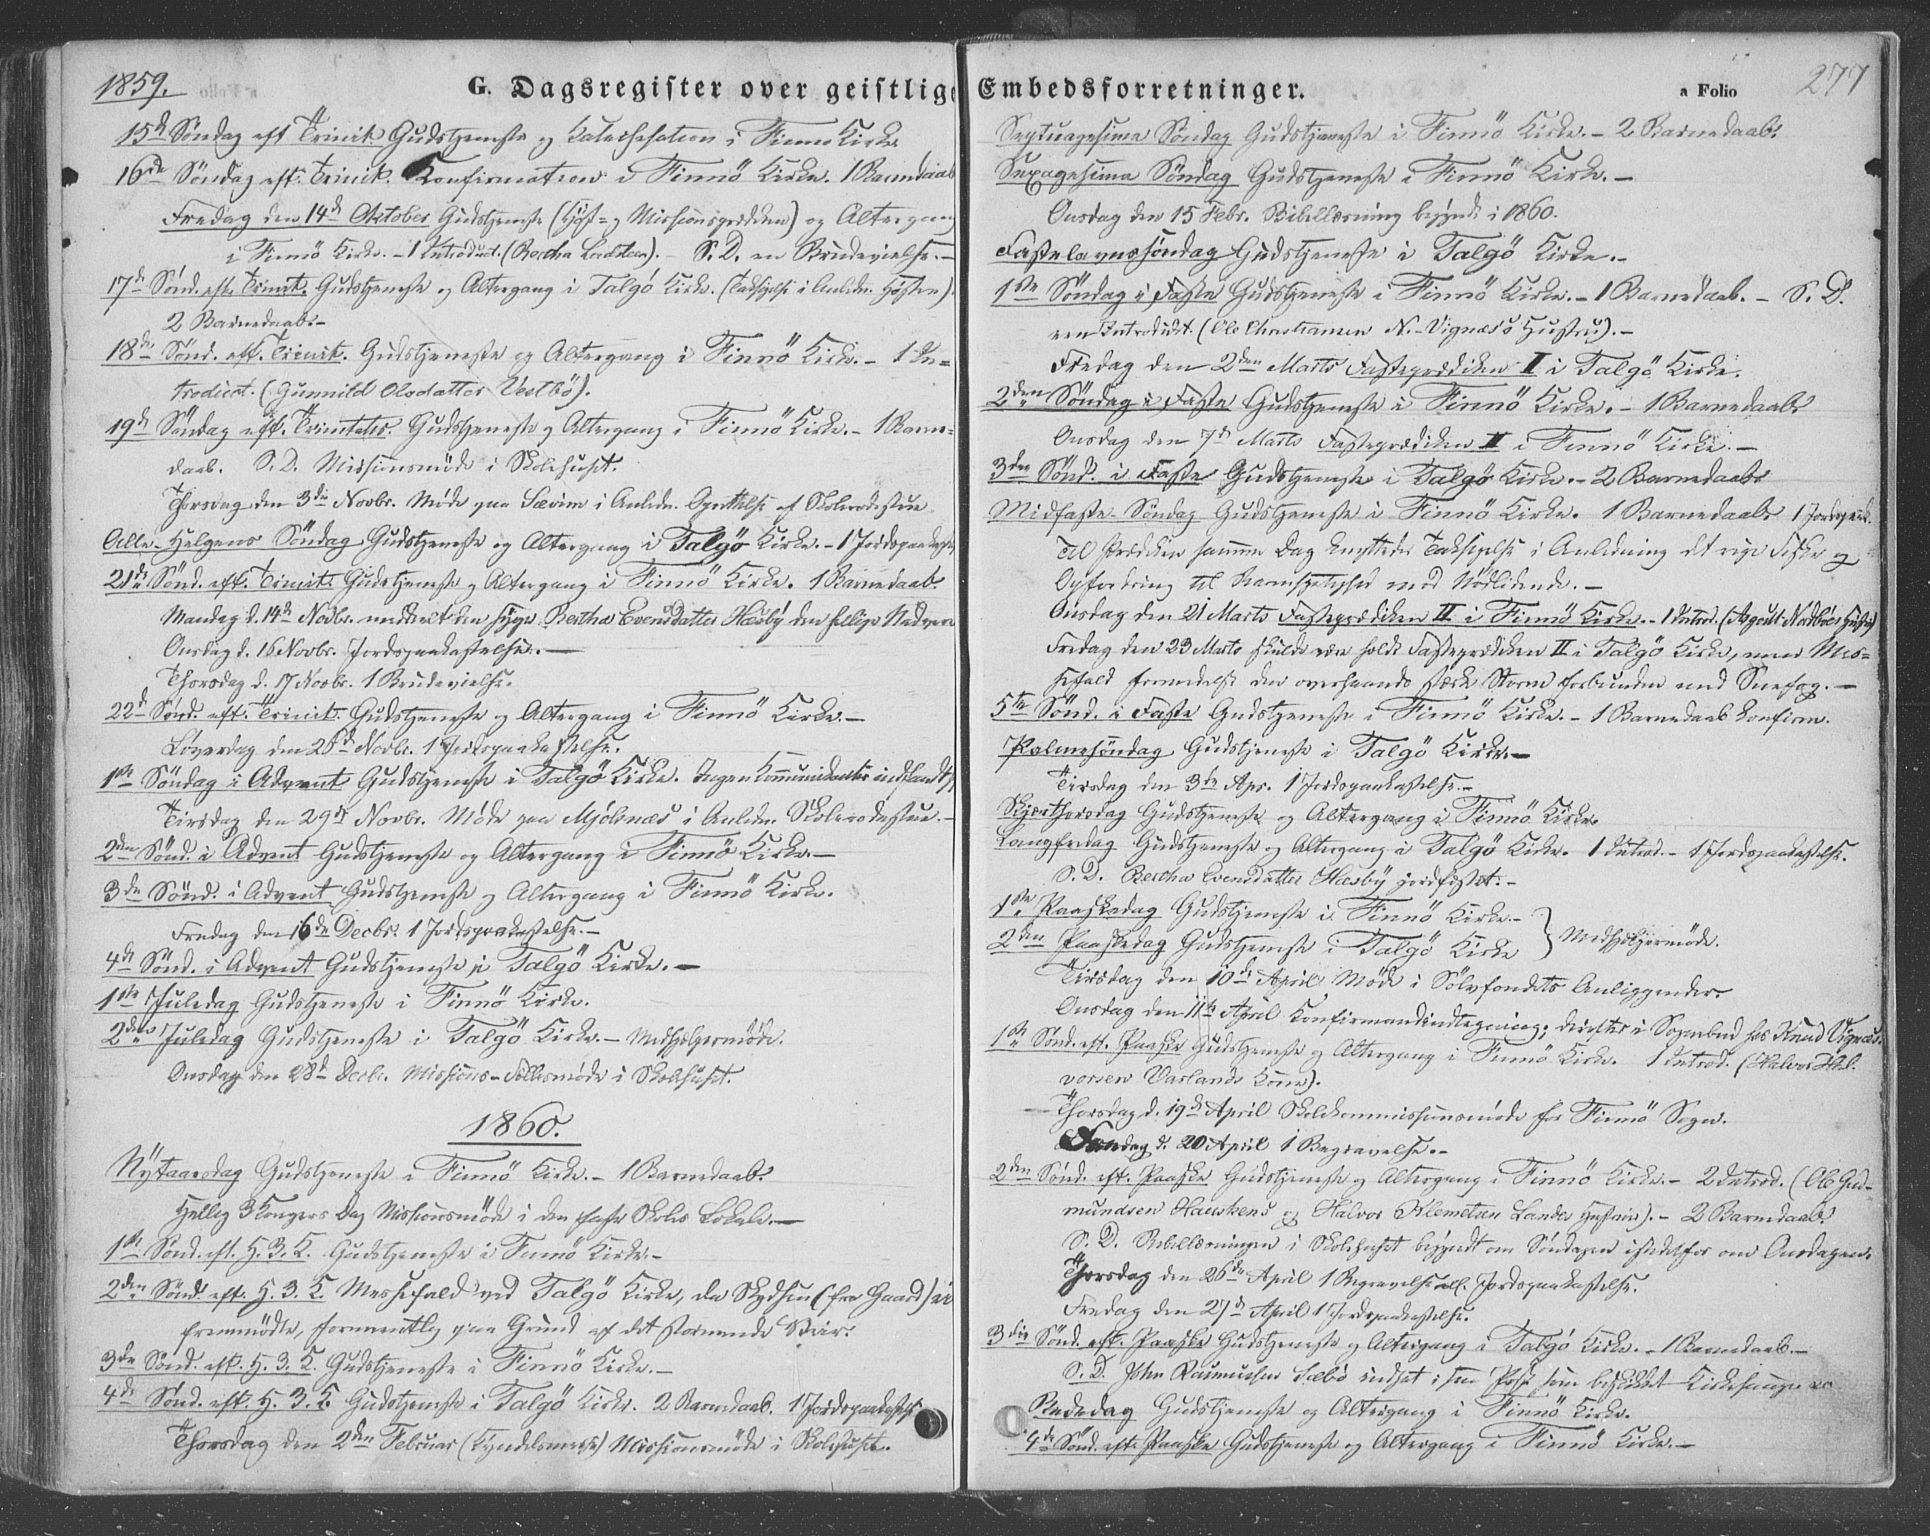 1859.
G. Dagsregister over geistlige
15de Søndag eft Trinit. Gudstjeneste og Catechesation i Finnö Kirke
16de Søndag eft. Trinit. Konfirmation i Finnö Kirke. 1 Barnedaab
Fredag den 14de Oktober Gudstjeneste (Høst- og Missionspræken) og Altergang
i Finnö Kirke. - 1 Introduct. (Bertha Ladsten). - S. D. en Brudevielse. -
17de Sönd. eft. Trinit. Gudstjeneste og Altergang i Talgö Kirke. (Taksigelse i Anledn. Høsten).
2 Barnedaab. -
18de Sönd. eft. Trinit. Gudstjeneste og Altergang i Finnö Kirke. - 1 In-
troduct. (Gunnild Olsdatter Vestbö).
19de Söndag eft. Trinitatis. Gudstjeneste og Altergang i Finnö Kirke. - 1 Barne-
daab. S. D. Missionsmöde i Skolehuset.
Thorsdag den 3die Novbr. Möde paa i Anledn. Oprettelse af Skolerodestue
Alle-Helgens Söndag Gudstjeneste og Altergang i Talgö Kirke. - 1 Jordspaakastelse
21de Sönd. eft. Trinit. Gudstjeneste og Altergang i Finnö Kirke. 1 Barnedaab.
Mandag d. 14de Novbr. meddeelt den syge Bertha Evensdatter Hæsby den hellige Nadvere
Onsdag d. 16 Novbr. Jordspaakastelse. -
Thorsdag d. 17 Novbr. 1 Brudevielse.
22de Sönd. eft. Trinit. Gudstjeneste og Altergang i Finnö Kirke. -
Løverdag den 26de Novbr. 1 Jordspaakastelse.
1ste Söndag i Advent Gudstjeneste i Talgö Kirke. Ingen Kommunikanter indfandt sig
Tirsdag den 29de Novbr. Möde paa Mjölsnæs i Anledn. Skolerodestue. -
2den Sönd. i Advent Gudstjeneste og Altergang i Finnö Kirke -
3die Sönd. i Advent Gudstjeneste og Altergang i Finnö Kirke.
Fredag den 16de Decbr. 1 Jordspaakastelse. -
4de Sönd. i Advent Gudstjeneste i Talgö Kirke. -
1ste Juledag Gudstjeneste i Finnö Kirke.
2den Juledag Gudstjeneste i Talgö Kirke. - Medhjelpermöde.
Onsdag den 28de Decbr. Missions-Fællesmöde i Skolehuset.
1860.
Nytaarsdag Gudstjeneste i Finnö Kirke. - 1 Barnedaab.
Hellig 3 Kongers Dag Missionsmöde i den faste Skoles Lokale. -
1ste Sönd. eft. H. 3. K. Gudstjeneste i Finnö Kirke. -
2den Sönd. eft. H. 3. K. Messefald ved Talgö Kirke, da Skydsen (fra Gaard) ei
fremmödte, formentlig paa Grund af det stormende Veir.
3die Sönd. eft. H. 3. K. Gudstjeneste i Finnö Kirke. -
4de Sönd. eft. H. 3. K. Gudstjeneste i Talgö Kirke. 2 Barnedaab. 1 Jordspaakastelse
Thorsdag den 2den Februar (Kyndelsmesse) Missionsmöde i Skolehuset.
Embedsforretninger.
a Folio
277
Septuagesima Söndag Gudstjeneste i Finnö Kirke. - 2 Barnedaab.
Sexagesima Söndag Gudstjeneste i Finnö Kirke. -
Onsdag den 15 Febr. Bibellæsning begyndt i 1860.
Fastelavnssöndag Gudstjeneste i Talgö Kirke. -
1ste Söndag i Faste Gudstjeneste i Finnö Kirke. - 1 Barnedaab. - S. D.
een Introduct. (Ole Christiansen N.-Vignæs's Hustru). -
Fredag den 2den Marts Fasteprædiken II i Talgö Kirke.
2den Söndag i Faste Gudstjeneste i Finnö Kirke. - 1 Barnedaab.
Onsdag den 7de Marts Fasteprædiken II i Finnö Kirke. -
3die Sönd. i Faste Gudstjeneste i Talgö Kirke. - 2 Barnedaab.
Midfaste-Söndag Gudstjeneste i Finnö Kirke. 1 Barnedaab. 1 Jordspaak.
Til Prædiken samme Dag knyttedes Taksigelse i Anledning det rige Fiske og
Opfordring til Barmhjertighed mod Nödlidende. -
Onsdag den 21 Marts Fasteprædiken II i Finnö Kirke. - 1 Introd. (Asgout Nordböes Hustru)
Fredag den 23 Marts skulde være holdt Fasteprædiken II i Talgö Kirke, men Mes-
sefald formedelst den overhaands stærke Storm forbunden med Snefog. -
5te Sönd. i Faste Gudstjeneste i Finnö Kirke. - 1 Barnedaab konfirm.
Palmesöndag Gudstjeneste i Talgö Kirke. -
Tirsdag den 3die Apr. 1 Jordspaakastelse. -
Skjærthorsdag Gudstjeneste og Altergang i Finnö Kirke.
Langfredag Gudstjeneste og Altergang i Talgö Kirke. 1 Introd. - 1 Jordspaakastelse.
S. D. Bertha Evensdatter Hæsby jordfæstet. -
1ste Paaskedag Gudstjeneste i Finnö Kirke. -
2den Paaskedag Gudstjeneste i Talgö Kirke } Medhjelpermöde.
Tirsdag den 10de April Möde i Sölvfondets Anliggender.
Onsdag den 11te April Konfirmandindtegning; derefter i Sognebud hos Knud Vignæs.
1ste Sönd. eft. Paaske Gudstjeneste og Altergang i Finnö Kirke. 1 Introd. (Halvor Hal-
vorsen Varlands Kone).
Thorsdag d. 19de April Skolekommissionsmöde for Finnö Sogn.
d. 20 April 1 Begravelse. -
2den Sönd. eft. Paaske Gudstjeneste og Altergang i Finnö Kirke. - 2 Introd. (Ole Gud-
mundsen Hauskens og Halvor Klemetsen Landes Hustruer). - 2 Barnedaab.
S. D. Bibellæsningen i Skolehuset begyndt om Söndagen istedetfor om Onsdagen.
Thorsdag den 26de April 1 Begravelse ell. Jordspaakastelse.
Fredag den 27de April 1 Jordspaakastelse.
3die Sönd. eft. Paaske Gudstjeneste og Altergang i Talgö Kirke. - 1 Barnedaab. -
S. D. John Rasmussen Sæbö indsat i sin Post som beskikket Kirkesanger
Bededag Gudstjeneste og Altergang i Finnö Kirke.
4de Sönd. eft. Paaske Gudstjeneste og Altergang i Finnö Kirke. -